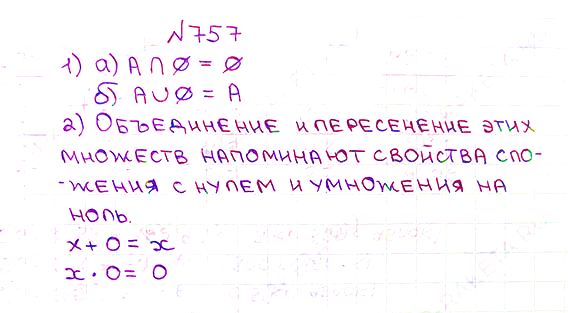 №757
1) а) A ∩ ∅ = ∅
б) A ∪ ∅ = A
2) Объединение и пересенение этих
множеств напоминают свойства сло-
-жения с нулем и умножения на
ноль.
x + 0 = x
x · 0 = 0